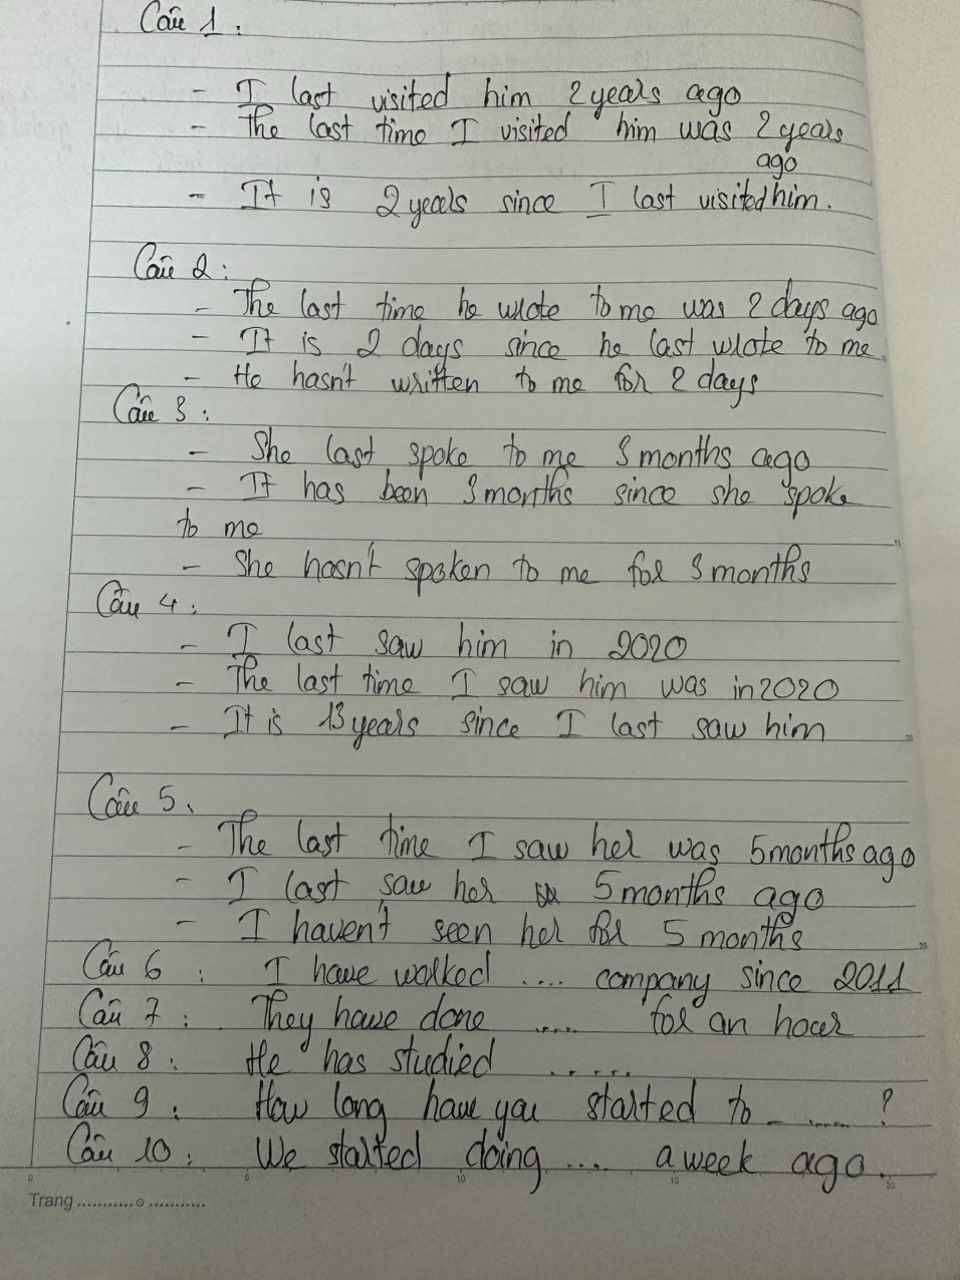 Câu 1:
- I last visited him 2 years ago
- The last time I visited him was 2 years
ago
- It is 2 years since I last visited him.
Câu 2:
- The last time he wrote to me was 2 days ago
- It is 2 days since he last wrote to me.
- He hasn't written to me for 2 days
Câu 3:
- She last spoke to me 3 months ago
- It has been 3 months since she spoke
to me
- She hasn't spoken to me for 3 months
Câu 4:
- I last saw him in 2020
- The last time I saw him was in 2020
- It is 13 years since I last saw him
Câu 5.
- The last time I saw her was 5 months ago
- I last saw her 5 months ago
- I haven't seen her for 5 months
Câu 6: I have worked .... company since 2011
Câu 7: They have done .... for an hour
Câu 8: He has studied .....
Câu 9: How long have you started to - ..... ?
Câu 10: We started doing .... a week ago.
0 5 10 15 20
Trang ...........o...........